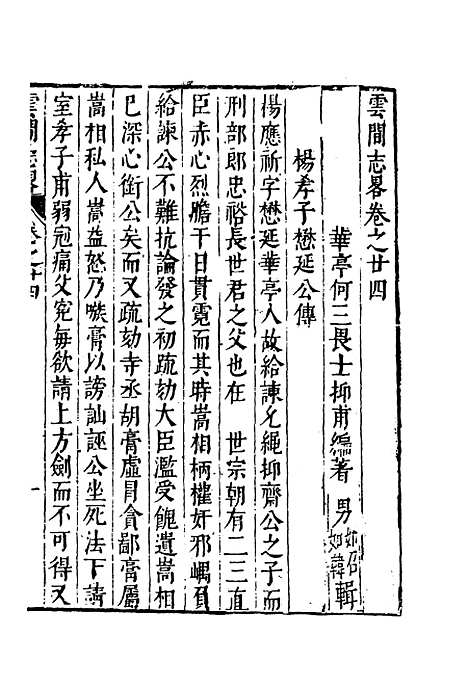 雲間志畧卷之廿四
華亭何三畏士抑甫編著 男
如韓
輯
楊孝子懋延公傳
楊應祈字懋延華亭人故給諫允繩抑齋公之子而
刑部郎忠裕長世君之父也在 世宗朝有二三直
臣赤心烈膽干日貫霓而其時嵩相柄權奸邪嵎負
給諫公不難抗論發之初疏劾大臣濫受餽遺嵩相
已深心銜公矣而又疏劾寺丞胡膏虛冒貪鄙膏屬
嵩相私人嵩益怒乃嗾膏以謗訕誣公坐死法下請
室孝子甫弱冠痛父寃每欲請上方劍而不可得又
雲間志畧
卷之廿四
一